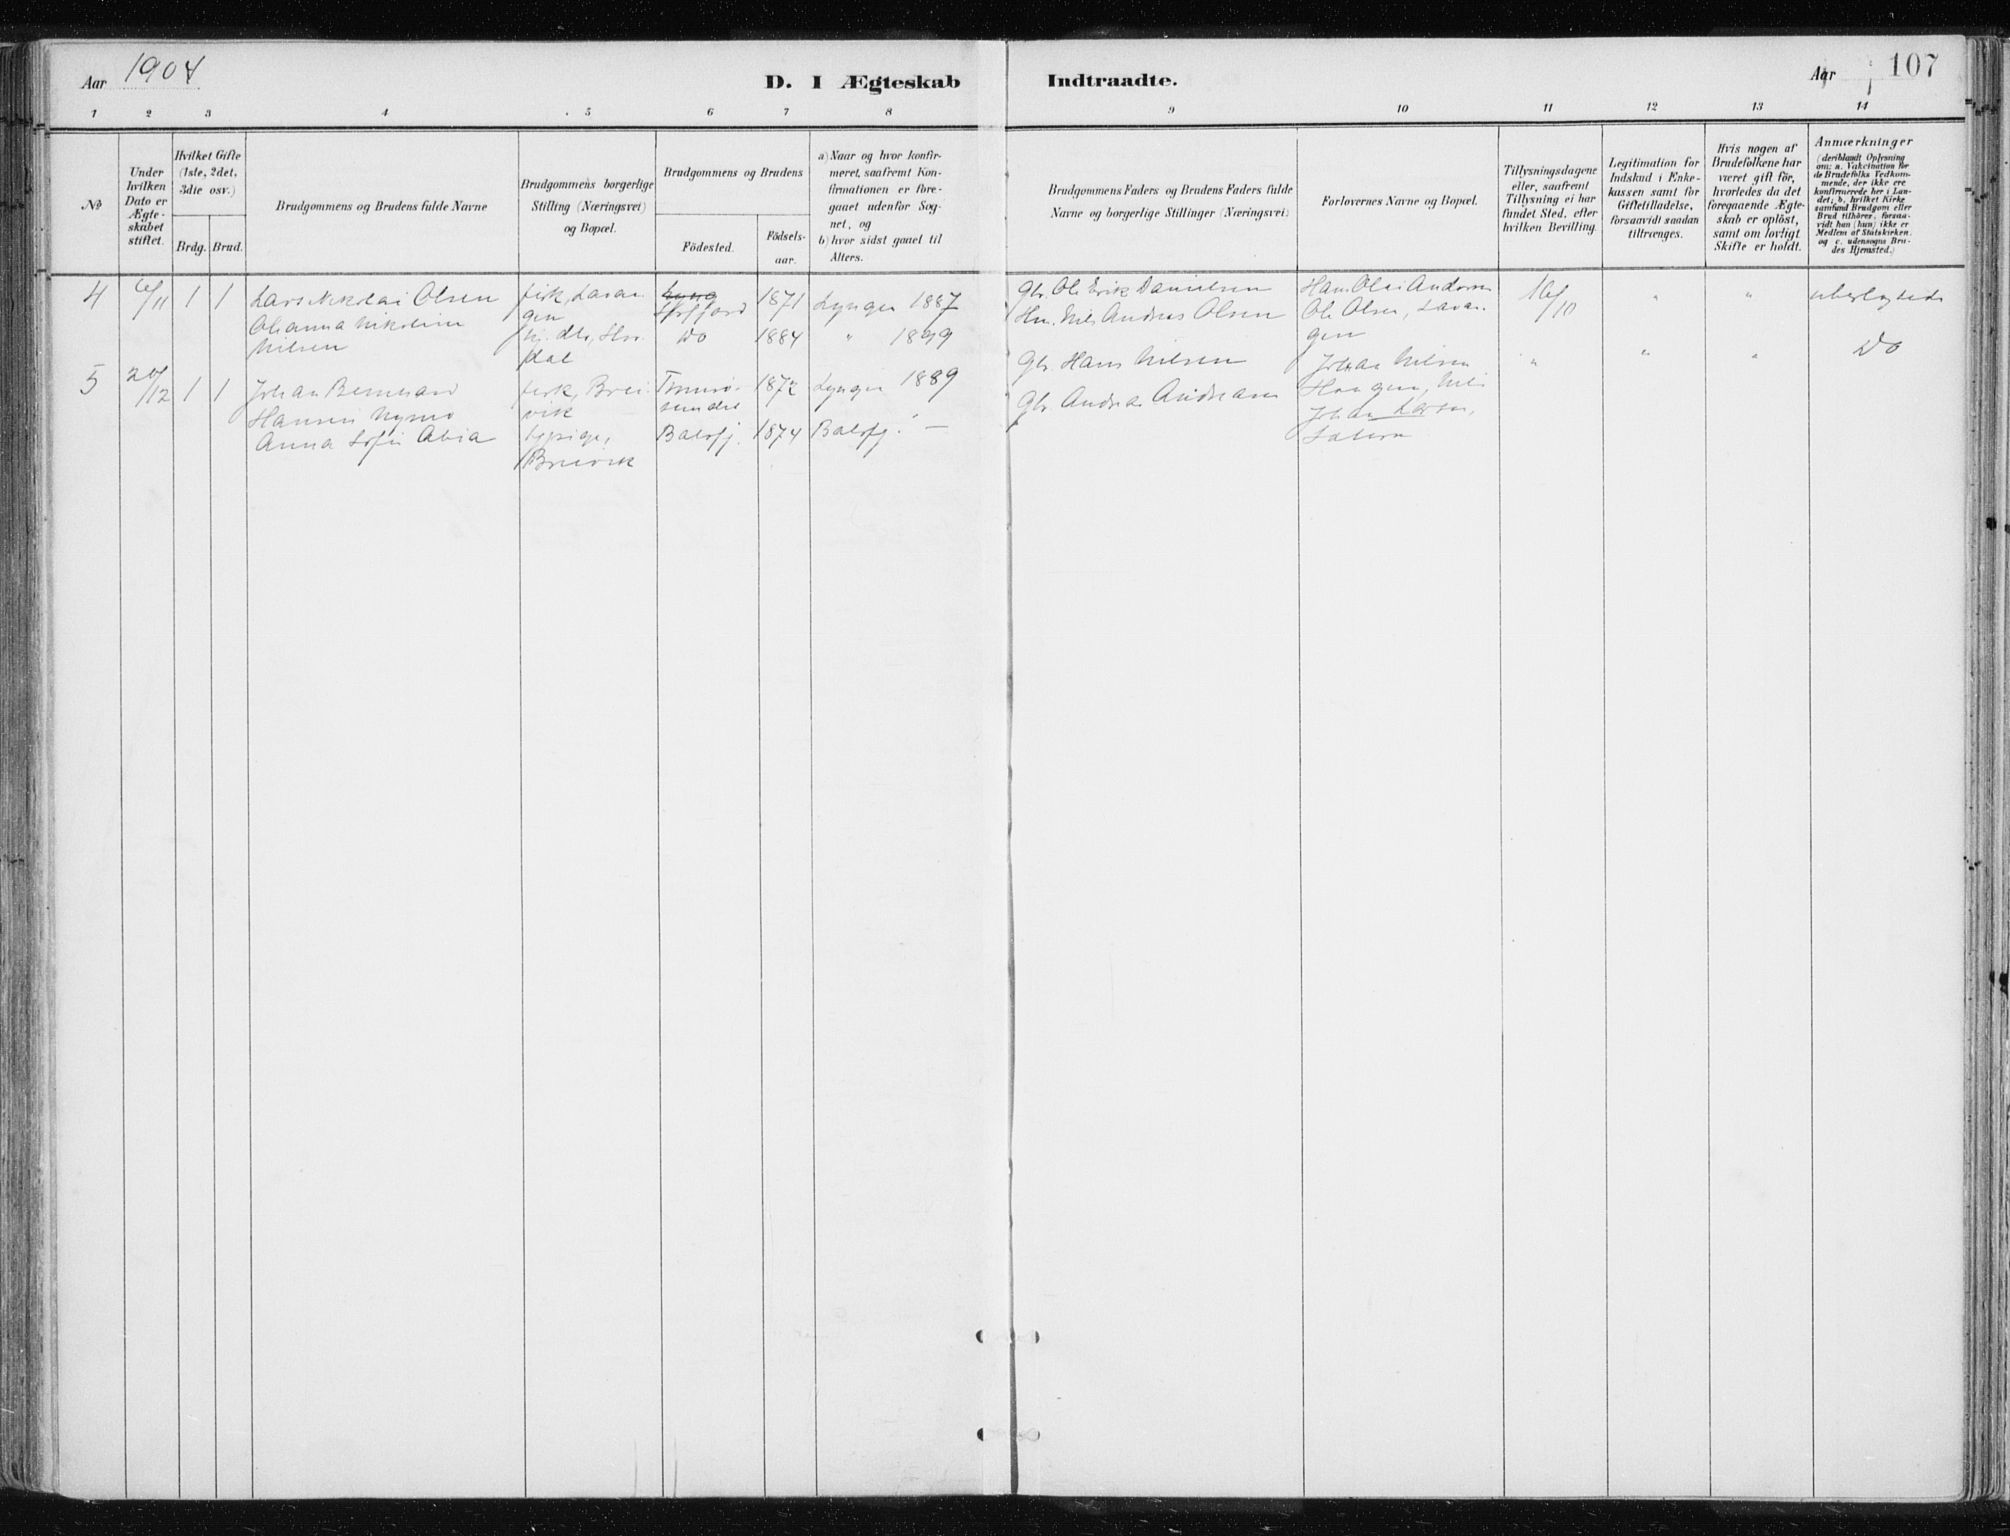 Aar 1904
D. I Ægteskab Indtraadte.
Aar 107
1 2 3 4 5 6 7 8 9 10 11 12 13 14
No
Under hvilken Dato er Ægteskabet stiftet.
Hvilket Gifte (1ste, 2det, 3die osv.)
Brdg. Brud.
Brudgommens og Brudens fulde Navne
Brudgommens borgerlige Stilling (Næringsvei) og Bopæl.
Brudgommens og Brudens
Födested.
Födsels-aar.
a) Naar og hvor konfir-
meret, saafremt Kon-
firmationen er fore-
gaaet udenfor Sog-
net, og
b) hvor sidst gaaet til
Alters.
Brudgommens Faders og Brudens Faders fulde
Navne og borgerlige Stillinger (Næringsvei)
Forlovernes Navne og Bopæl.
Tillysningsdagene
eller, saafremt
Tillysning ei har
fundet Sted, efter
hvilken Bevilling.
Legitimation for
Indskud i Enke-
kassen samt for
Giftetilladelse,
forsaavidt saadan
tiltrænges.
Hvis nogen af
Brudefolkene har
været gift før,
hvorledes da det
foregaaende Ægte-
skab er oplöst,
samt om lovligt
Skifte er holdt.
Anmærkninger
(deriblandt Oplysning
om: a. Vakcination for
de Brudefolks Vedkom-
mende, der ikke ere
konfirmerede her i Lan-
det; b. hvilket Kirke
samfund Brudgom eller
Brud tilhörer, forsaa-
vidt han (hun) ikke er
Medlem af Statskirken.
og c. udensogns Bru-
des Hjemsted.)
4 6/11 1 1 Lars Nikolai Olsen
Ohanna Nikoline
Nilsen
fisk, Lavan
gen
dal
1871 Lyngen 1887
do 1884 " 1899
Gbr. Ole Erik Danielsen
Hm. Nils Andreas Olsen
Hans Olai Andersen
Ole Olsen, Lavan-
gen
16/10 " " ubeslægtede
5 20/12 1 1 Johan Bernhard
Hansen Nymo
Anna Sofie Abia
fisk, Brei
vik
Breivik
Tromsø-
sundet
Balsfj.
1872 Lyngen 1889
1874 Balsfj. " —
Gbr. Hans Nilsen
Gbr. Andreas Andreasen
Johan Nilsen
Haugen, Nils
Johan Larsen,
" " " Do